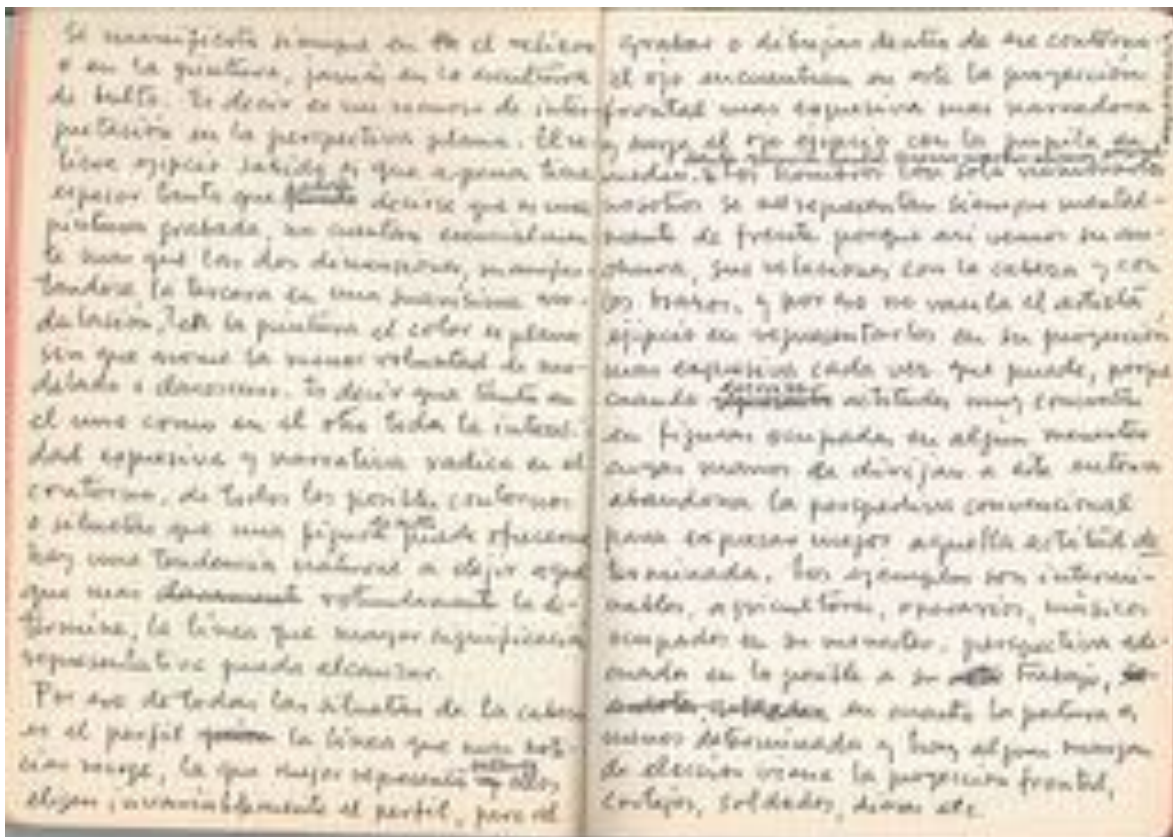 Se manifiesta siempre en el relieve
o en la pintura, jamás en la escultura
de bulto. Es decir es un manera de inter-
pretación en la perspectiva plana. El re-
lieve egipcio sabido es que apena tiene
espesor tanto que puede decirse que es una
pintura grabada, no cuentan esencialmen
te mas que las dos dimensiones, manifes-
tandose la tercera en una suavísima mo-
dulación. En la pintura el color es plano
sin que asome la menor voluntad de mo-
delado o claroscuro. Es decir que tanto en
el uno como en el otro toda la intensi-
dad expresiva y narrativa radica en el
contorno, de todos los posible contornos
o siluetas que una figura puede ofrecerse
hay una tendencia natural a elejir aque
que mas claramente rotundamente la de-
termine, la línea que mayor significacion
representativa pueda alcanzar.
Por eso de todas las siluetas de la cabeza
es el perfil la línea que mas noti-
cias recoge, la que mejor representa ellos
elijen invariablemente el perfil, pero al
grabar o dibujar dentro de ese contorno
el ojo encuentran en este la proyección
frontal mas expresiva mas narradora
y surge el ojo egipcio con la pupila en
medio. Los hombros con solo nombrarlos
nosotros se nos representan siempre mental-
mente de frente porque asi vemos su an-
chura, sus relaciones con la cabeza y con
los brazos, y por eso no vacila el artista
egipcio en representarlos en su proyección
mas expresiva cada vez que puede, porque
cuando actitudes muy concretas
en figuras ocupadas en algun menester
cuyas manos se dirijan a este entonces
abandona la perspectiva convencional
para expresar mejor aquella actitud de
terminada. Los ejemplos son intermi-
nables, agricultores, operarios, músicos
ocupados en su menester, perspectiva ade
cuada en lo posible a su trabajo,
en cuanto la postura es
menos determinada y hay algun margen
de eleccion viene la proyeccion frontal,
cortejos, soldados, dioses etc.